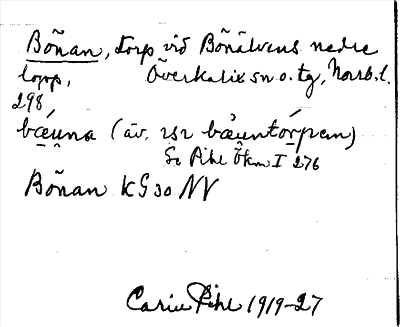 Bönan, torp vid Bönälvens nedre
lopp, Överkalix sn o. tg, Norrb. l.
298
bǽu̯na (äv. bǽu̯ntórpen)
Se Pihl Ökm I 276
Bönan KG 30 NV
Carin Pihl 1919-27